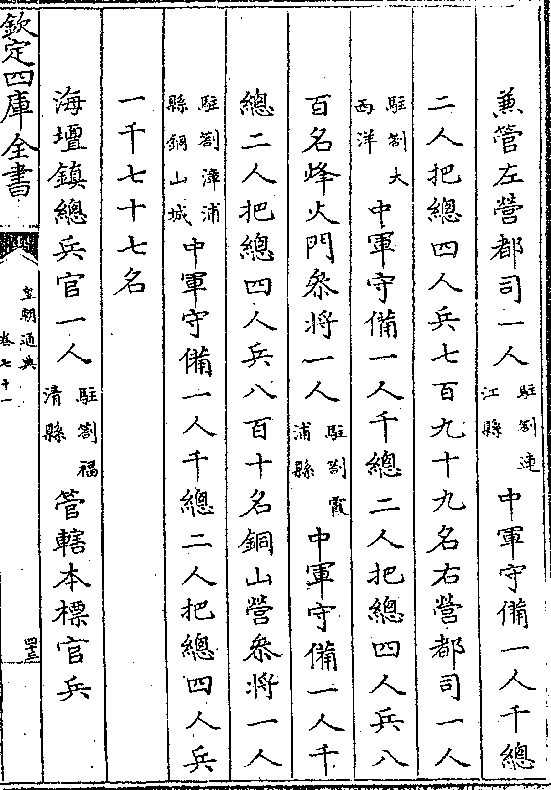 兼管左營都司一人駐劄連江縣中軍守備一人千總
二人把總四人兵七百九十九名右營都司一人
駐劄大西洋中軍守備一人千總二人把總四人兵八
百名烽火門叅將一人駐劄霞浦縣中軍守備一人千
總二人把總四人兵八百十名銅山營叅將一人
駐劄漳浦縣銅山城中軍守備一人千總二人把總四人兵
一千七十七名
海壇鎮總兵官一人駐劄福清縣管轄本標官兵
欽定四庫全書
皇朝通典
卷七十一
四十三